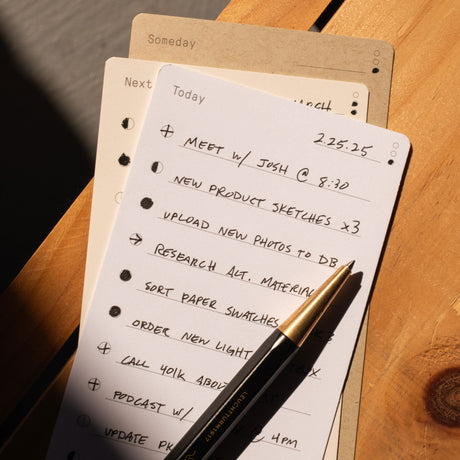 Someday
Next
MARCH
Today
2.25.25
MEET W/ JOSH @ 8:30
NEW PRODUCT SKETCHES x3
UPLOAD NEW PHOTOS TO DB
RESEARCH ALT. MATERIAL
SORT PAPER SWATCHES
ORDER NEW LIGHT
CALL 401K
PODCAST W/ @ 4PM
UPDATE
LEUCHTTURM1917